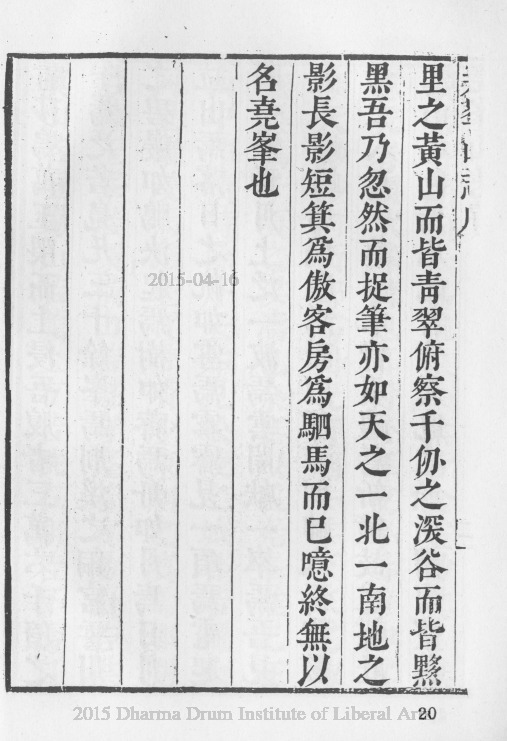 里之黃山而皆青翠俯察千仞之深谷而皆黟
黑吾乃忽然而捉筆亦如天之一北一南地之
影長影短箕爲傲客房爲駟馬而已噫終無以
名堯峯也
2015-04-16
2015 Dharma Drum Institute of Liberal Ar
20